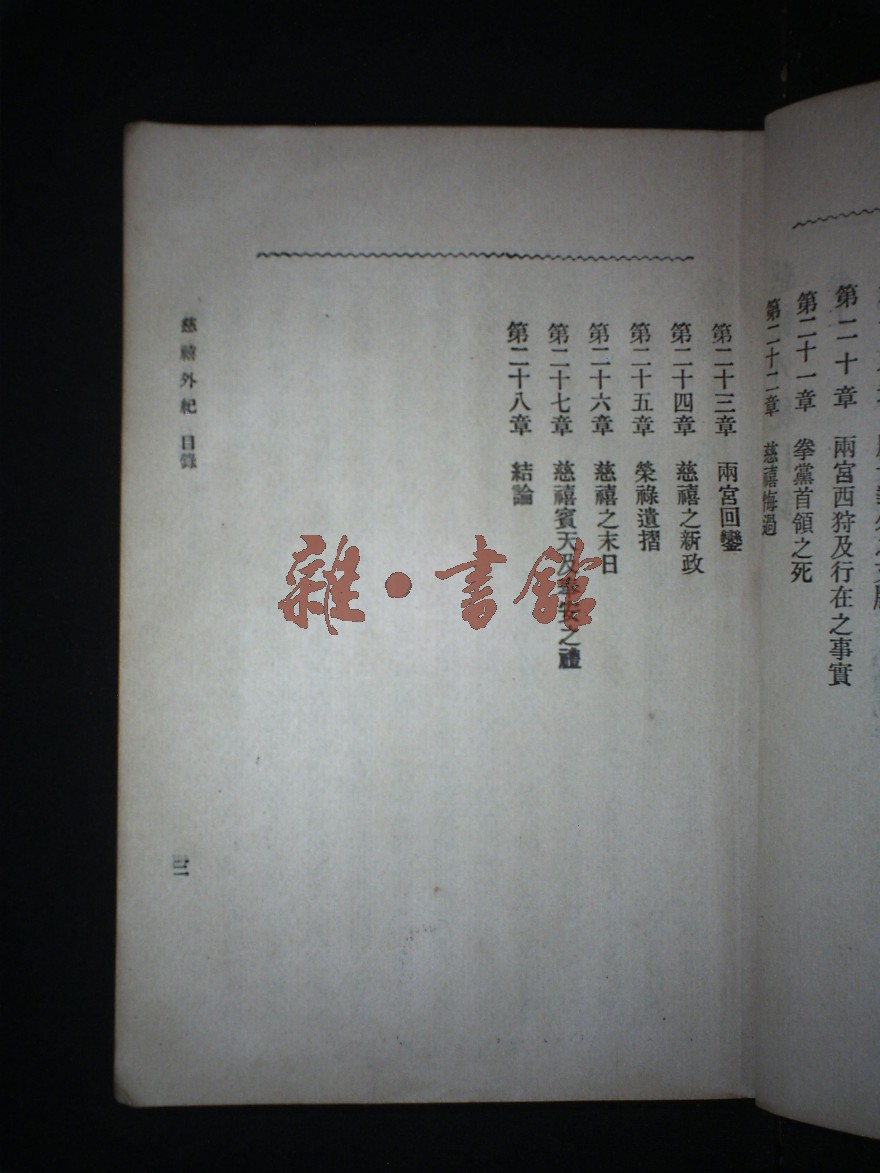 第二十章　兩宮西狩及行在之事實
第二十一章　拳黨首領之死
第二十二章　慈禧悔過
第二十三章　兩宮回鑾
第二十四章　慈禧之新政
第二十五章　榮祿遺摺
第二十六章　慈禧之末日
第二十七章　慈禧賓天及奉安之禮
第二十八章　結論
慈禧外紀　目錄
三
雜·書館